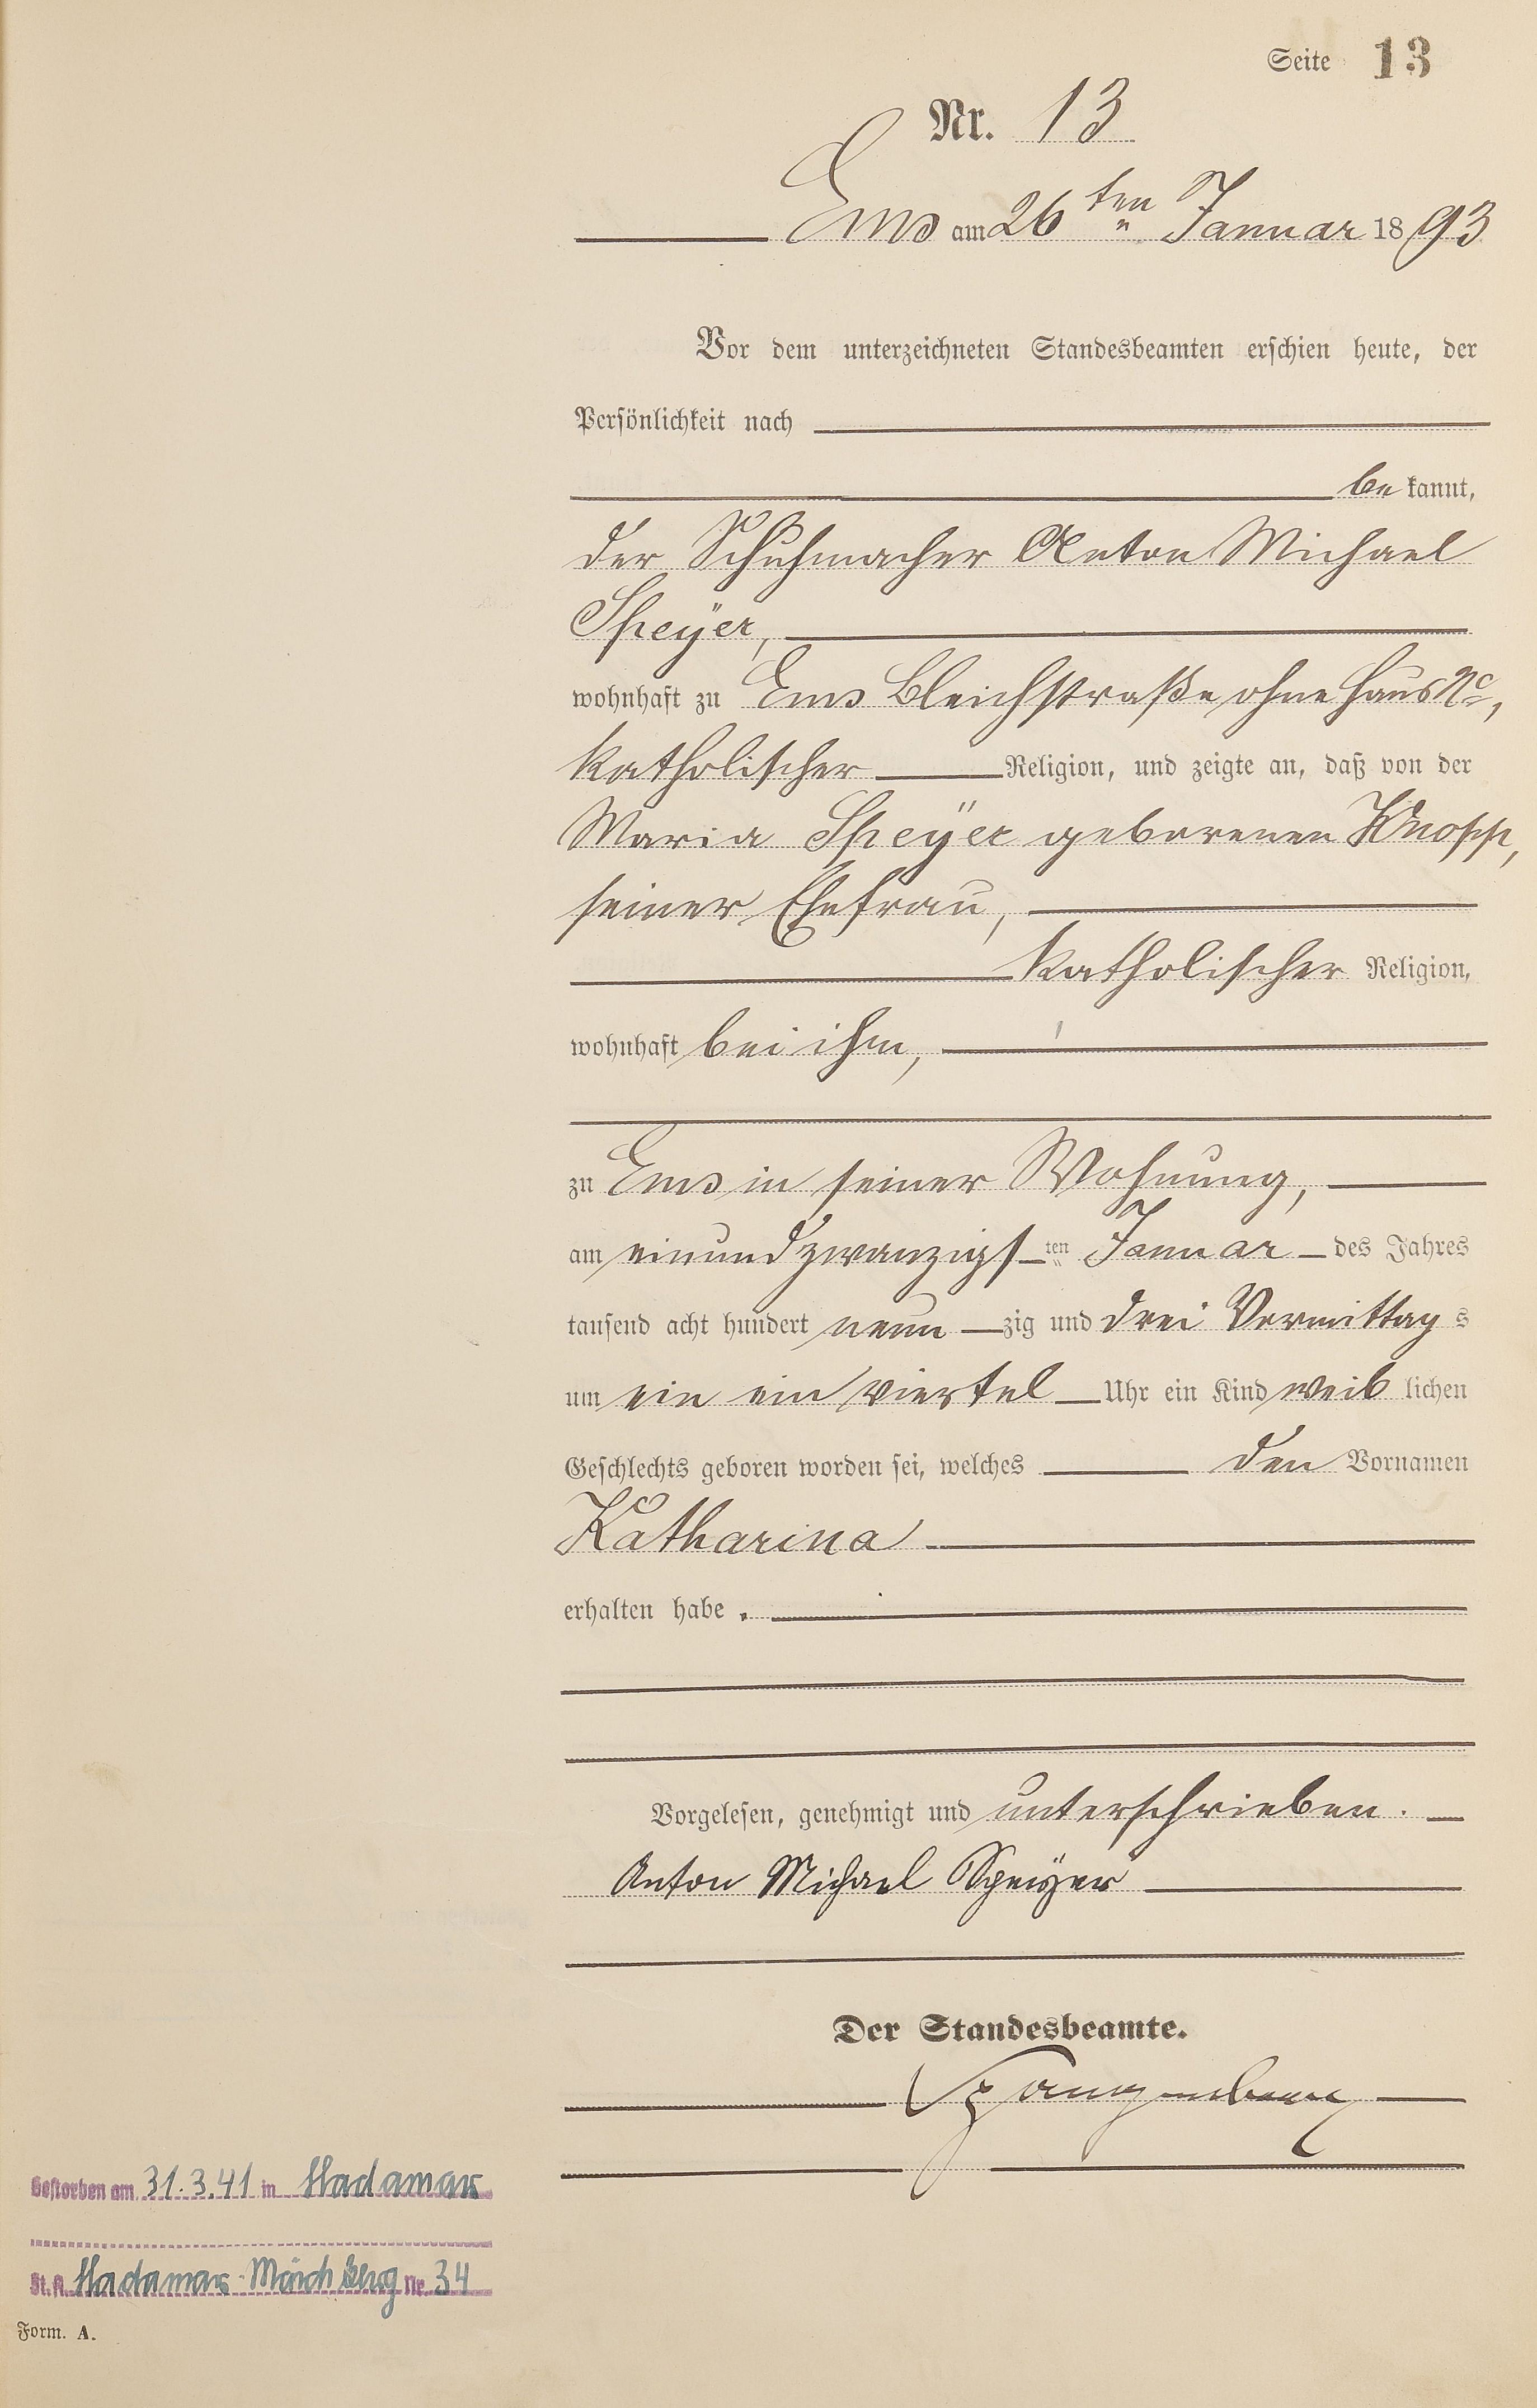 Seite 13
Nr. 13
Ems am 26ten Januar 1893
Vor dem unterzeichneten Standesbeamten erschien heute, der
Persönlichkeit nach
be kannt,
der Schuhmacher Anton Michael
Speÿer,
wohnhaft zu Ems Bleichstraße ohne Haus No,
katholischer Religion, und zeigte an, daß von der
Maria Speÿer geborenen Knopp,
seiner Ehefrau,
katholischer Religion,
wohnhaft bei ihm,
zu Ems in seiner Wohnung,
am einundzwanzigsten Januar des Jahres
tausend acht hundert neun zig und drei Vormittags
um ein ein viertel Uhr ein Kind weib lichen
Geschlechts geboren worden sei, welches den Vornamen
Katharina
erhalten habe.
Vorgelesen, genehmigt und unterschrieben.
Anton Michael Speÿer
Der Standesbeamte.
Spangenberg
Gestorben am 31.3.41 in Hadamar
St.A. Hadamar-Mönchberg Nr. 34
Form. A.